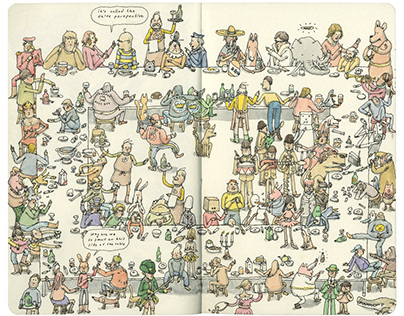 it's called the
extra perspective
why are we
so small on this
side of the table